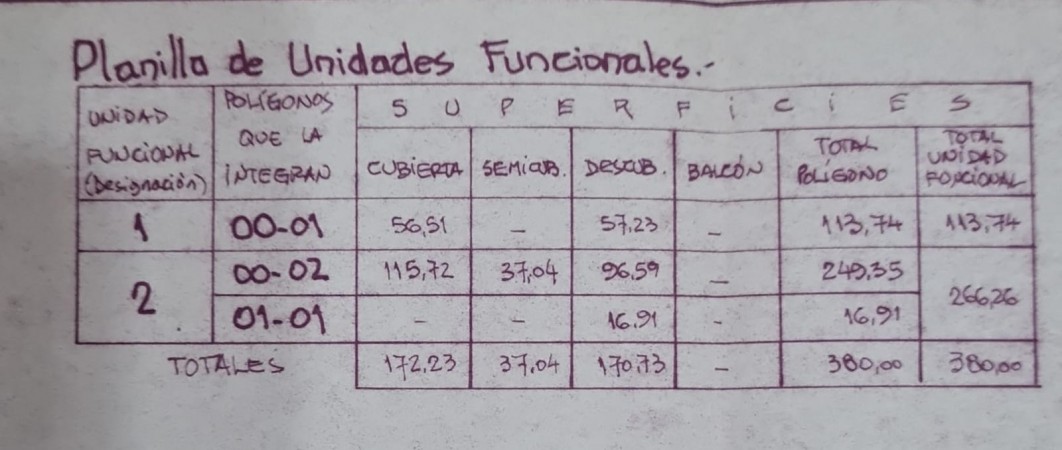 Planilla de Unidades Funcionales.-
UNIDAD FUNCIONAL (Designación) POLÍGONOS QUE LA INTEGRAN SUPERFICIES
CUBIERTA SEMICUB. DESCUB. BALCÓN TOTAL POLÍGONO TOTAL UNIDAD FUNCIONAL
1 00-01 56,51 - 57,23 - 113,74 113,74
2 00-02 115,72 37,04 96,59 - 249,35 266,26
01-01 - - 16.91 - 16,91
TOTALES 172,23 37,04 170,73 - 380,00 380,00